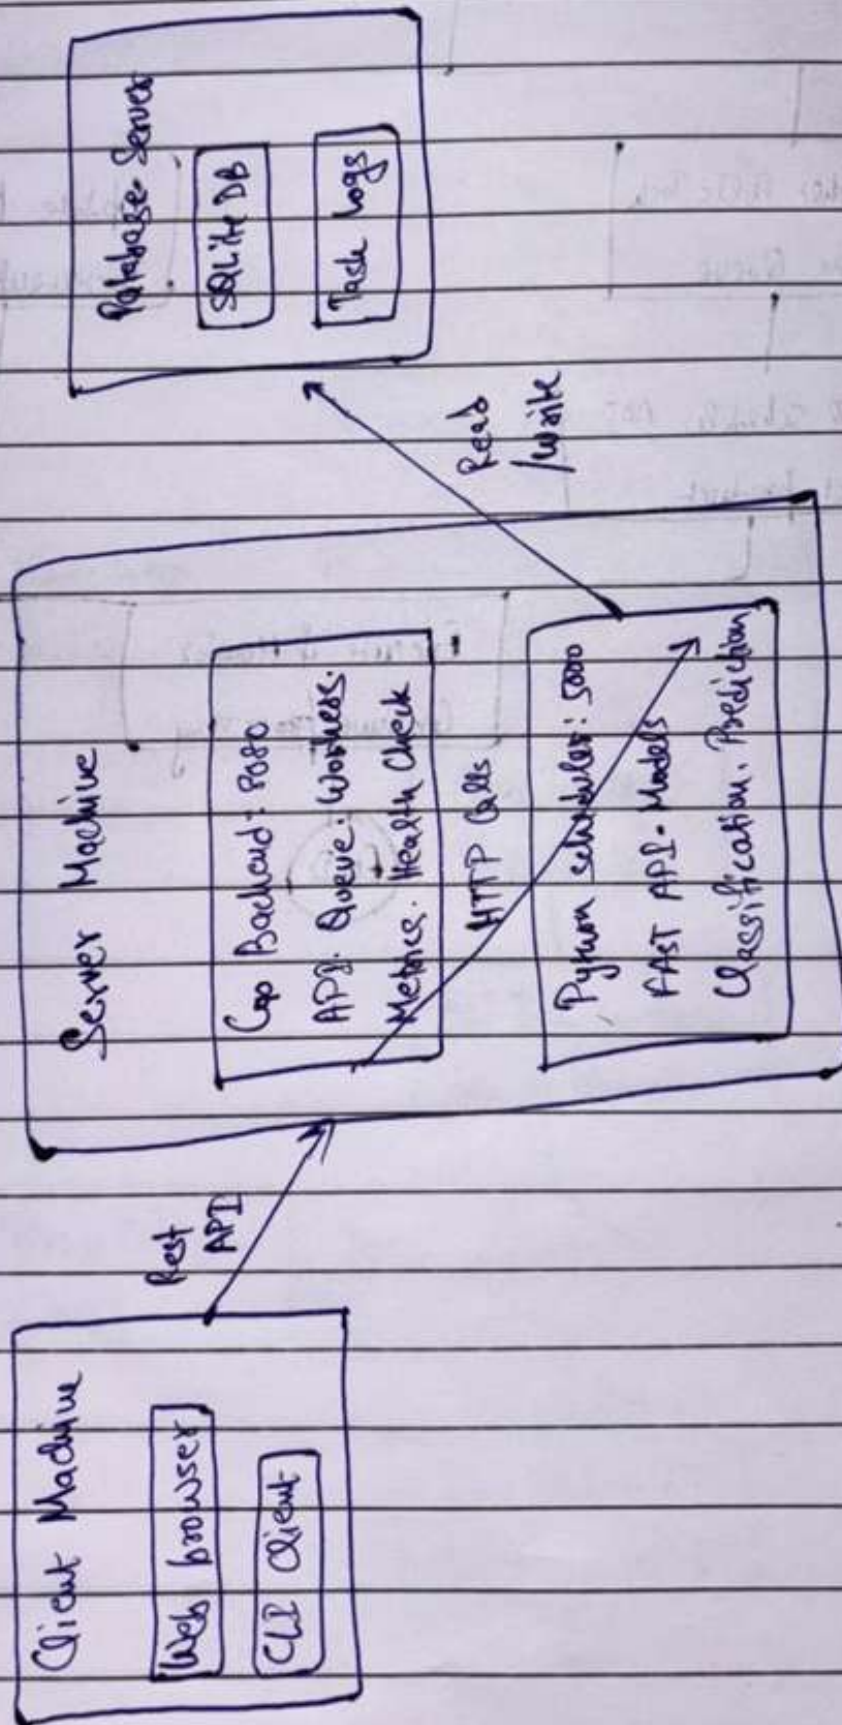 Client Machine
Web browser
CLI Client
Rest
API
Server Machine
Go Backend: 8080
API. Queue. Workers.
Metrics. Health Check
HTTP Calls
Python scheduler: 5000
FAST API. Models
Classification. Prediction
Read
/write
Database Server
SQLite DB
Task Logs